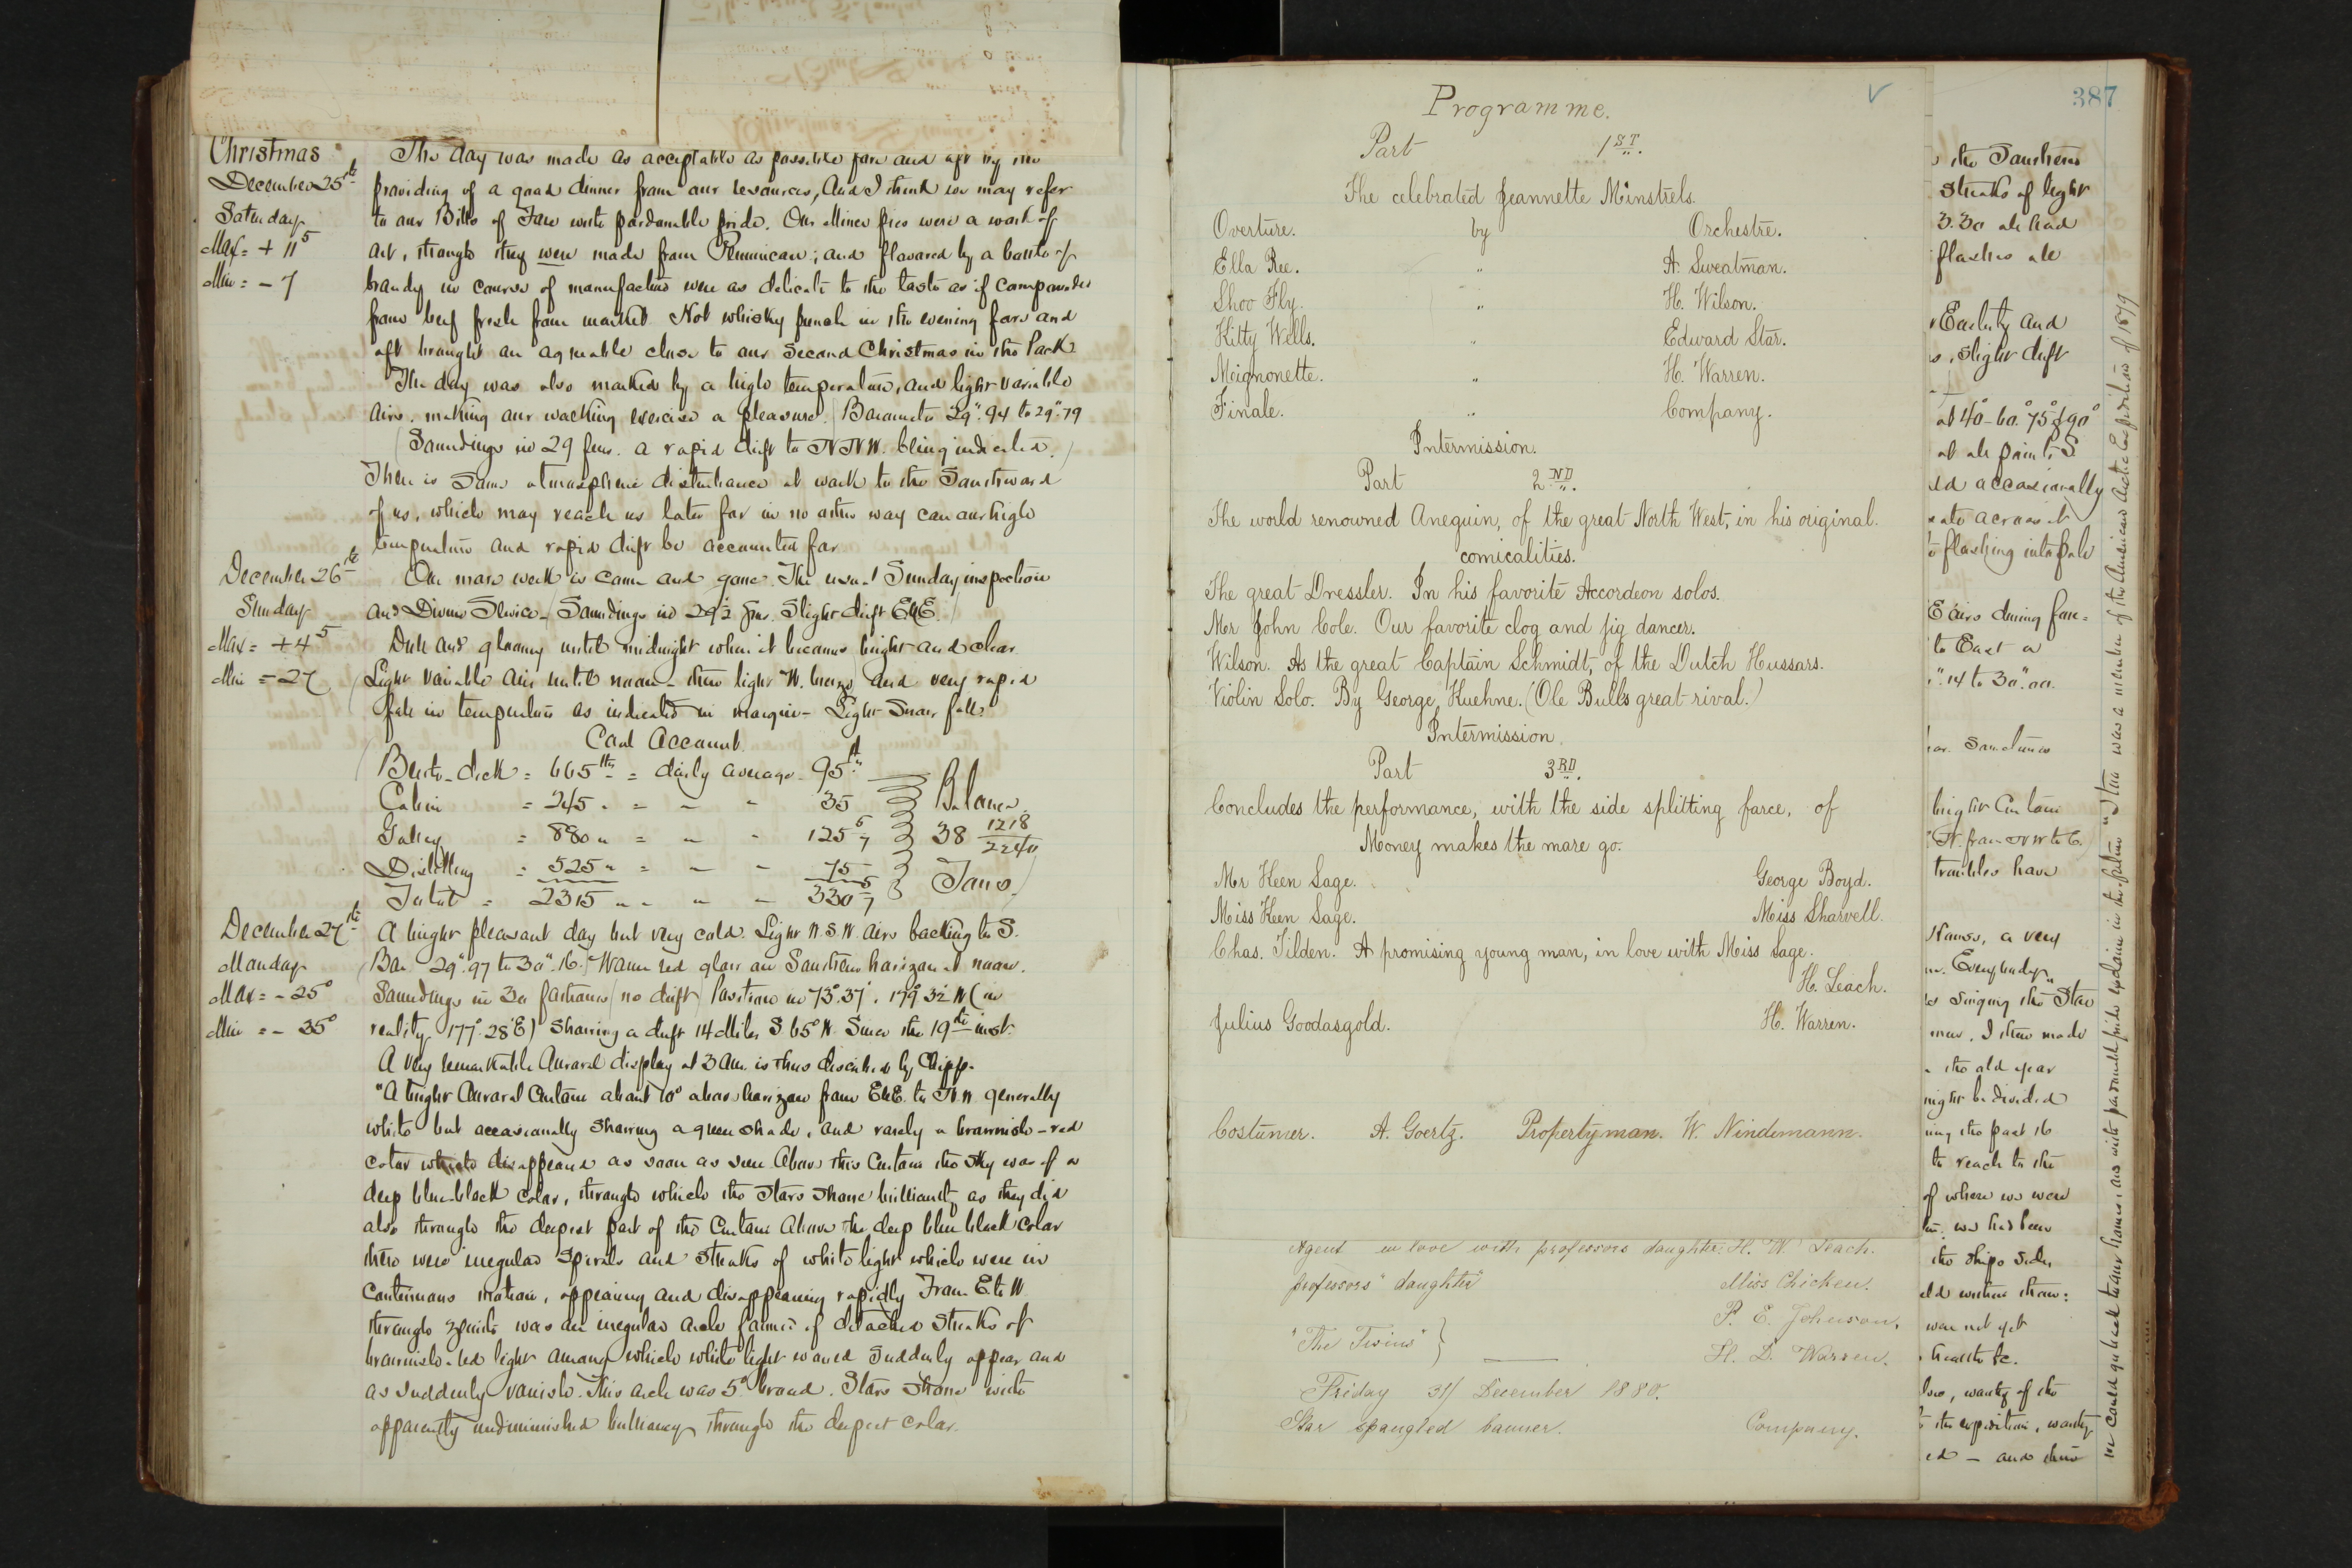 Christmas
December 25th
Saturday
Max = + 11⁵
Min = - 7
The day was made as acceptable as possible fore and aft by the
providing of a good dinner from our resources, and I think we may refer
to our Bills of Fare with pardonable pride. Our Mince pies were a work of
art, though they were made from Pemmican; and flavored by a bottle of
brandy in course of manufacture were as delicate to the taste as if compounded
from beef fresh from market. Hot whisky punch in the evening fore and
aft brought an agreeable close to our Second Christmas in the Pack.
The day was also marked by a high temperature, and light variable
airs, making our walking exercise a pleasure. Barometer 29".94 to 29".79
Soundings in 29 fms. a rapid drift to N.N.W. being indicated.
There is some atmospheric disturbance at work to the Southward
of us, which may reach us later for in no other way can our high
temperature and rapid drift be accounted for.
December 26th
Sunday
Max = + 4⁵
Min = - 27
One more week is come and gone. The usual Sunday inspection
and Divine Service - Soundings in 29½ fms. Slight drift E&E.
Dull and gloomy until midnight when it became bright and clear
Light variable airs until noon - then light W. breeze and very rapid
fall in temperature as indicated in margin - Light Snow fall.
Coal Account.
Berth-deck = 665 lbs = daily average - 95 lbs
Cabin = 245 " = " " 35
Galley = 880 " = " - 125 5/7
Distilling = 525 " = - - 75
Total = 2315 " " " - 330 5/7
Balance
38 1218/2240
Tons
December 27th
Monday
Max = - 25°
Min = - 35°
A bright pleasant day but very cold. Light W.S.W. airs backing to S.
Bar 29".97 to 30".16. Warm red glow on Southern horizon at noon.
Soundings in 30 fathoms (no drift) Position in 73°.37', 179° 32' W (in
reality 177° 28' E) showing a drift 14 Miles S 65° W. Since the 19th inst.
A very remarkable Auroral display at 3 AM. is thus described by Chipp.
"A bright Auroral Curtain about 10° above horizon from E&E. to N.W. generally
white but occasionally showing a green shade, and rarely a brownish-red
color which disappeared as soon as seen. Above this Curtain the sky was of a
deep blue-black color, through which the stars shone brilliantly as they did
also through the deepest part of the Curtain. Above the deep blue black color
there were irregular Spirals and Streaks of white light which were in
Continuous motion, appearing and disappearing rapidly From E to W
through zenith was an irregular arch formed of detached Streaks of
brownish-red light among which white light waved suddenly appear and
as suddenly vanish. This arch was 5° broad. Stars shone with
apparently undiminished brilliancy through the deepest color.
Programme.
Part 1ST.
The celebrated Jeannette Minstrels.
Overture. by Orchestre.
Ella Ree. " A. Sweatman.
Shoo Fly. " H. Wilson.
Kitty Wells. " Edward Star.
Moignonette. " H. Warren.
Finale. " Company.
Intermission.
Part 2ND.
The world renowned Anequin, of the great North West, in his original.
comicalities.
The great Dressler. In his favorite Accordeon solos.
Mr John Cole. Our favorite clog and jig dancer.
Wilson. As the great Captain Schmidt, of the Dutch Hussars.
Violin Solo. By George Kuehne. (Ole Bulls great rival.)
Intermission.
Part 3RD.
Concludes the performance, with the side splitting farce, of
Money makes the mare go.
Mr Keen Sage. George Boyd.
Miss Keen Sage. Miss Sharvell.
Chas. Tilden. A promising young man, in love with Miss Sage.
H. Leach.
Julius Goodasgold. H. Warren.
Costumer. A. Goertz. Property man. W. Nindemann.
Agent in love with professors daughter. H. W. Leach.
professors' daughter Miss Chicken.
"The Twins" } P. E. Johnson.
H. D. Warren.
Friday 31/ December 1880.
Star spangled banner. Company.
387
the Southern
Streaks of light
3.30 ah had
flashes ale
Easterly and
slight drift
at 40°-60° 75° & 90°
at all points S
occasionally
across it
flashing into pale
E airs during fore=
to East a
".14 to 30".00.
Sometimes
bright Curtain
N. from NW to E.
troubles have
Hawes, a very
Everybody
singing the "Star
men. I then made
the old year
might be divided
ing the past 16
to reach to the
of where we were
we had been
the ships sides
were not yet
health &c.
worthy of the
the expedition, worthy
ed - and then
we could go back to our homes, and with pardonable pride exclaim in the future "I too was a member of the American Arctic Expedition of 1879